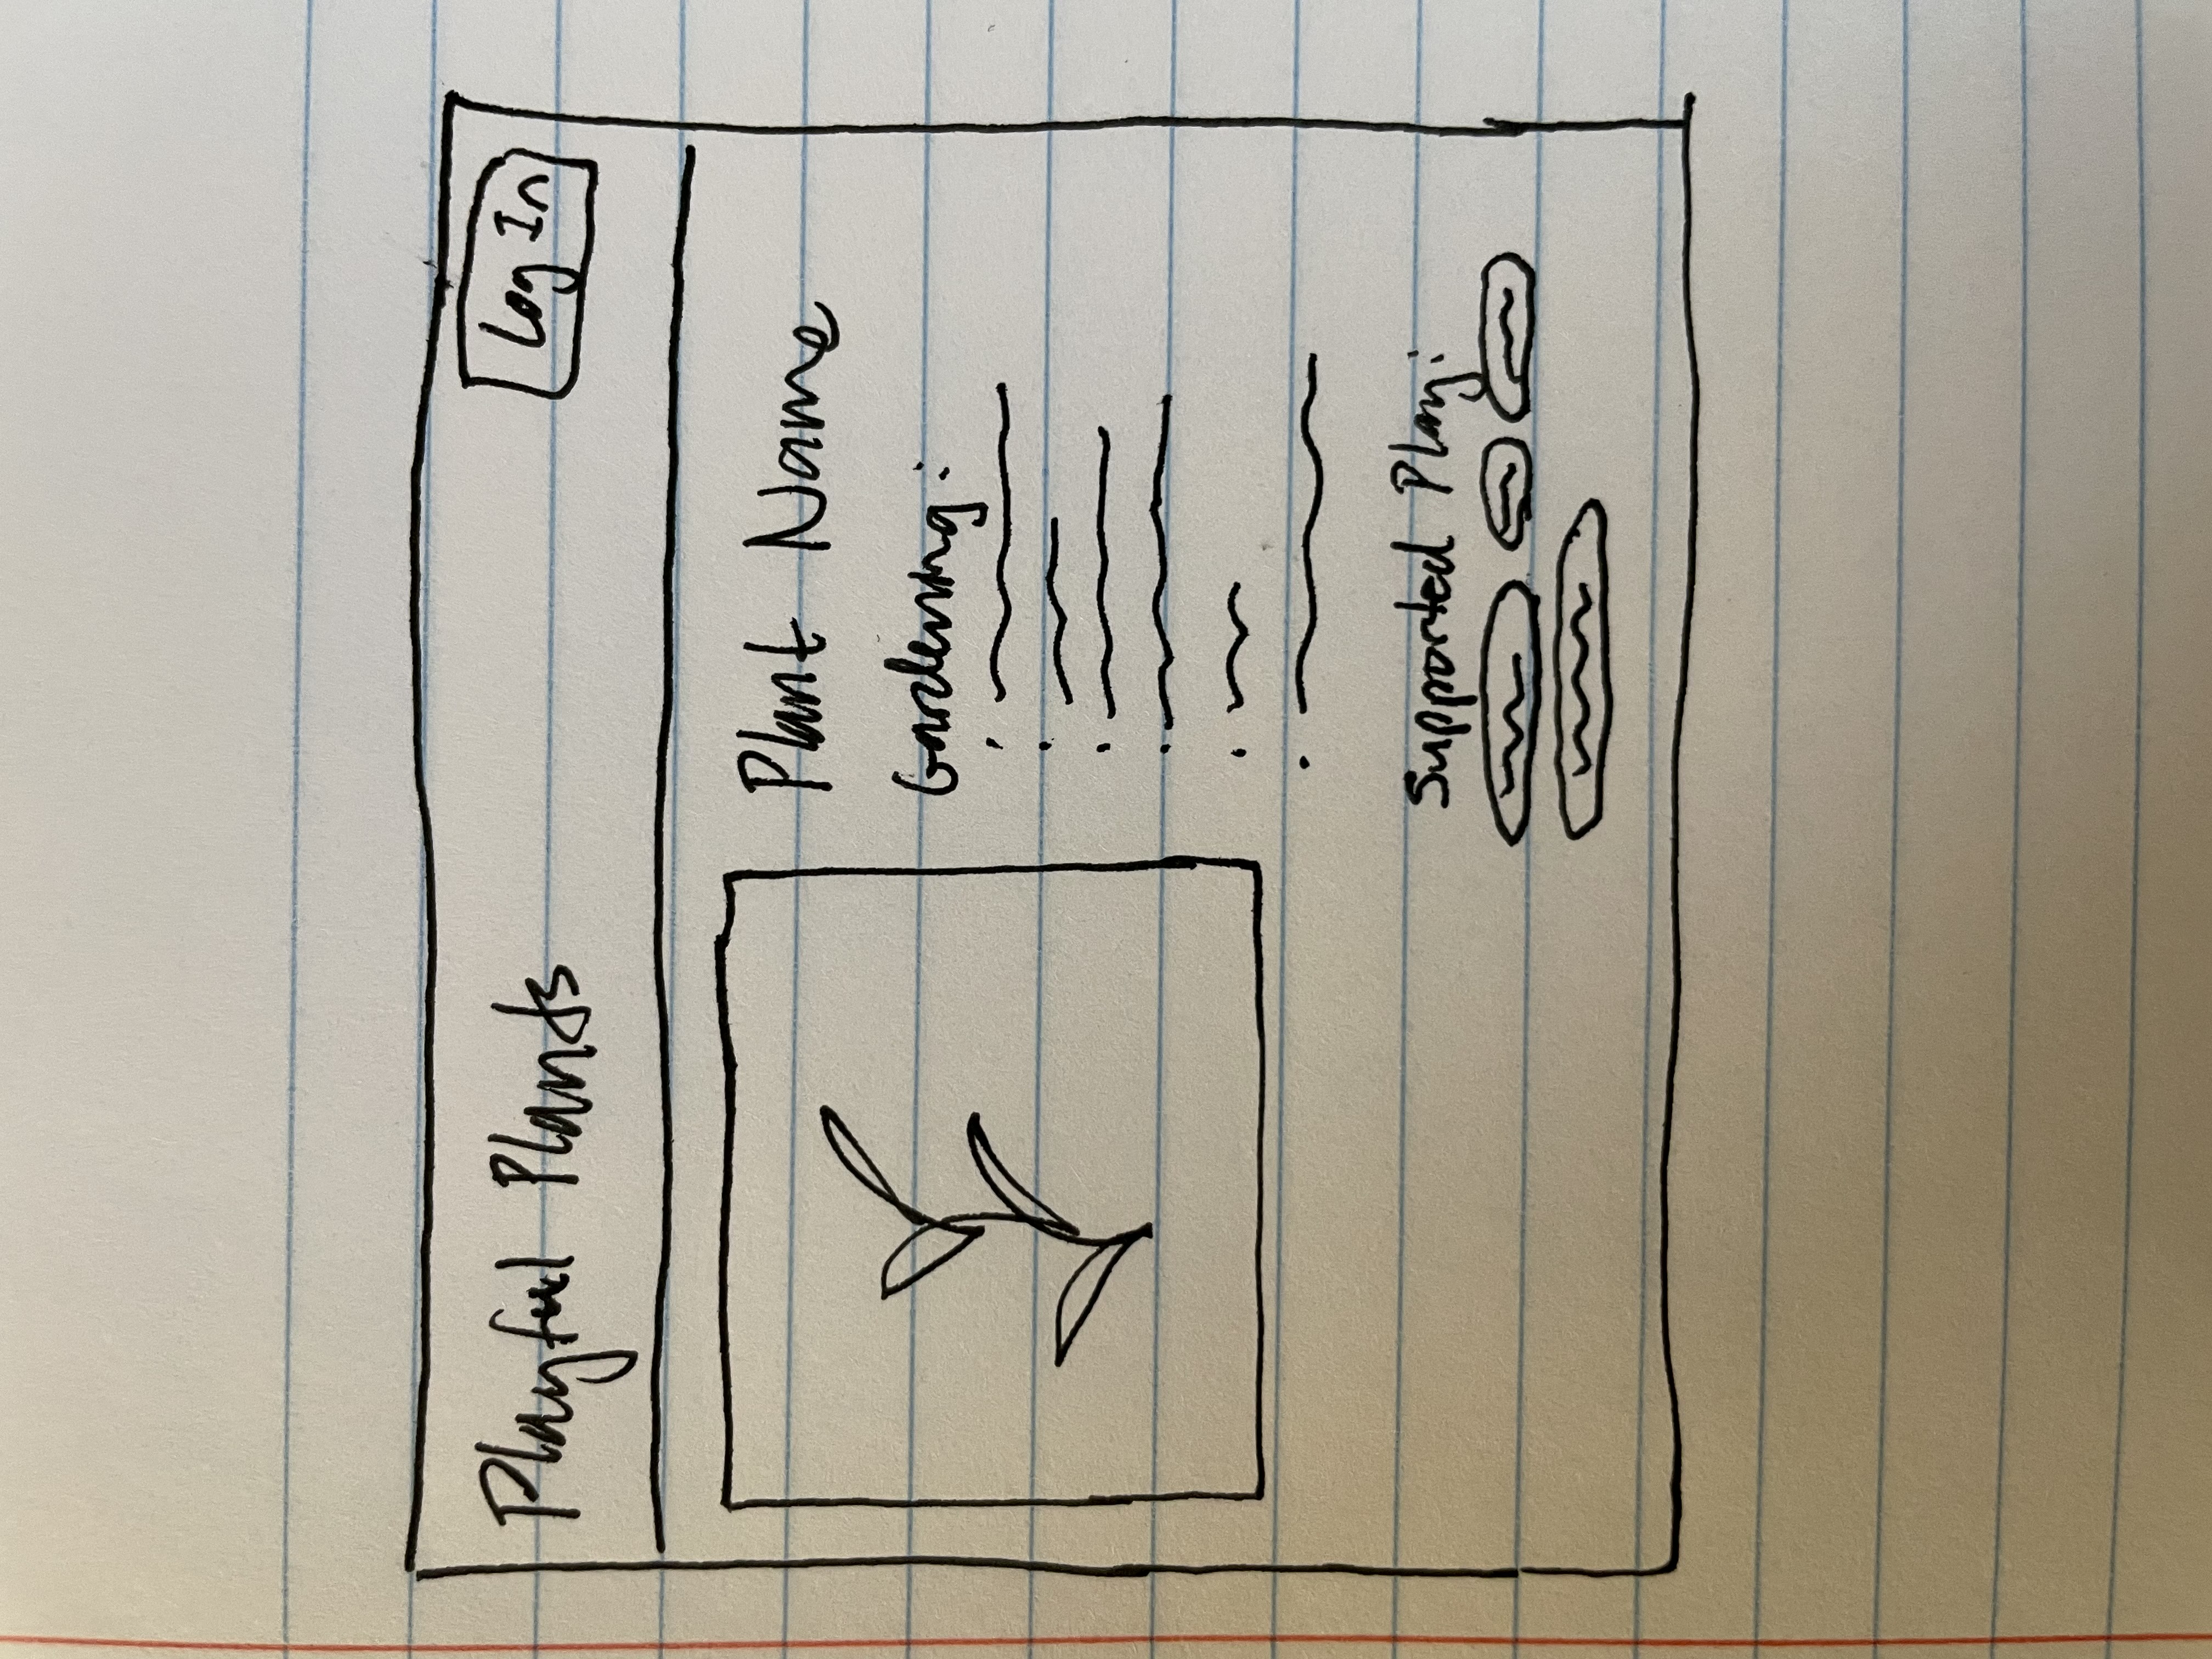 Playful Plants
Log In
Plant Name
Gardening:
Supported Play: